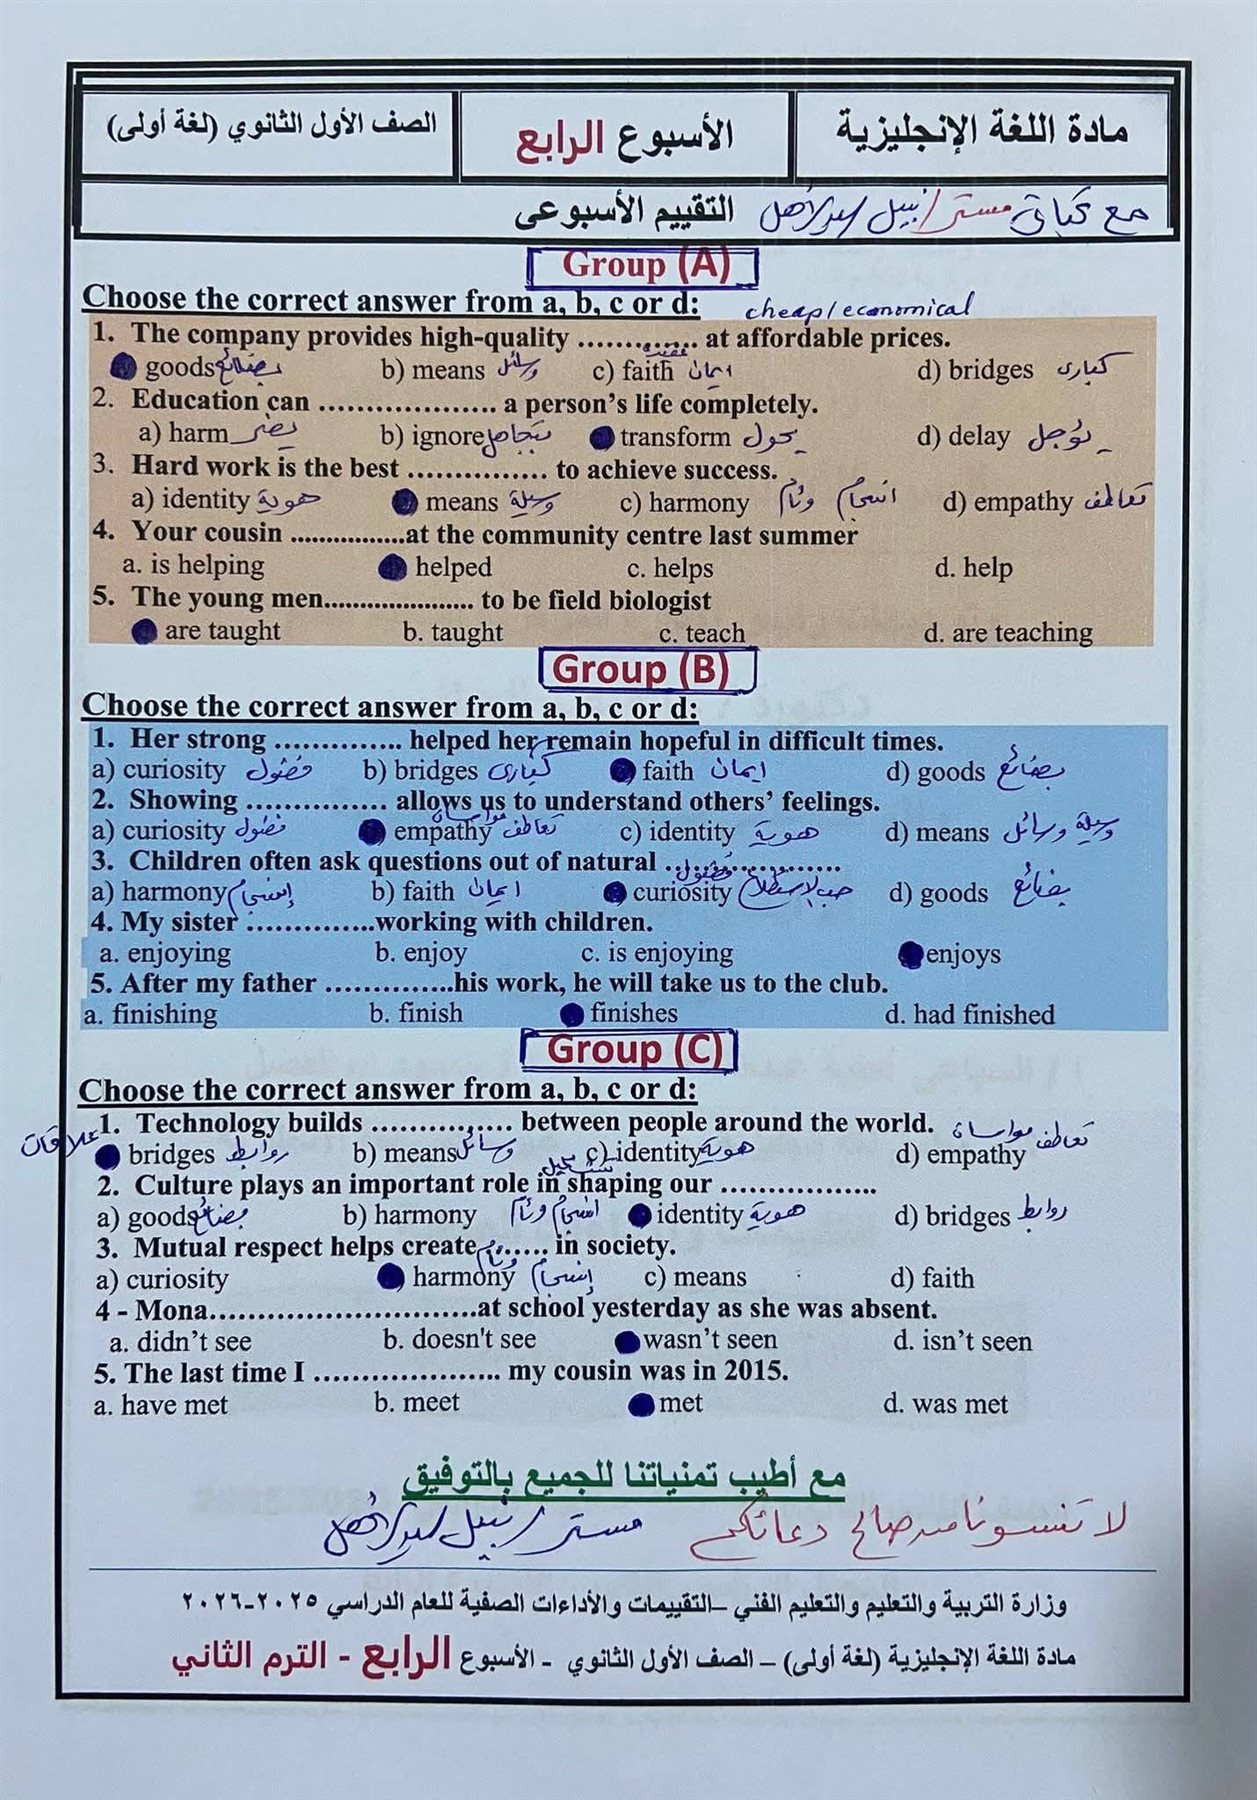 مادة اللغة الإنجليزية
الأسبوع الرابع
الصف الأول الثانوي (لغة أولى)
التقييم الأسبوعى مع تحياتى مستر / نبيل
Group (A)
Choose the correct answer from a, b, c or d: cheap/economical
1. The company provides high-quality ............ at affordable prices.
goods بضائع b) means وسائل c) faith ايمان عقيدة d) bridges كبارى
2. Education can ................... a person's life completely.
a) harm يضر b) ignore يتجاهل transform يحول d) delay يؤجل
3. Hard work is the best ............... to achieve success.
a) identity هوية means وسيلة c) harmony انسجام وئام d) empathy تعاطف
4. Your cousin ................at the community centre last summer
a. is helping helped c. helps d. help
5. The young men..................... to be field biologist
are taught b. taught c. teach d. are teaching
Group (B)
Choose the correct answer from a, b, c or d:
1. Her strong .............. helped her remain hopeful in difficult times.
a) curiosity فضول b) bridges كبارى faith ايمان d) goods بضائع
2. Showing ............... allows us to understand others' feelings.
a) curiosity فضول empathy تعاطف مواساة c) identity هوية d) means وسيلة وسائل
3. Children often ask questions out of natural ...................
a) harmony إنسجام b) faith ايمان curiosity حب الاستطلاع فضول d) goods بضائع
4. My sister ..............working with children.
a. enjoying b. enjoy c. is enjoying enjoys
5. After my father ..............his work, he will take us to the club.
a. finishing b. finish finishes d. had finished
Group (C)
Choose the correct answer from a, b, c or d:
1. Technology builds ............... between people around the world.
علاقات bridges روابط b) means وسائل c) identity هوية d) empathy تعاطف مواساة
2. Culture plays an important role in shaping our ................. تشكيل
a) goods بضائع b) harmony انسجام وئام identity هوية d) bridges روابط
3. Mutual respect helps create ....... in society.
a) curiosity harmony إنسجام وئام c) means d) faith
4 - Mona............................at school yesterday as she was absent.
a. didn't see b. doesn't see wasn't seen d. isn't seen
5. The last time I .................... my cousin was in 2015.
a. have met b. meet met d. was met
مع أطيب تمنياتنا للجميع بالتوفيق
لا تنسونا من صالح دعائكم مستر / نبيل
وزارة التربية والتعليم والتعليم الفني –التقييمات والأداءات الصفية للعام الدراسي ٢٠٢٥-٢٠٢٦
مادة اللغة الإنجليزية (لغة أولى) – الصف الأول الثانوي - الأسبوع الرابع - الترم الثاني